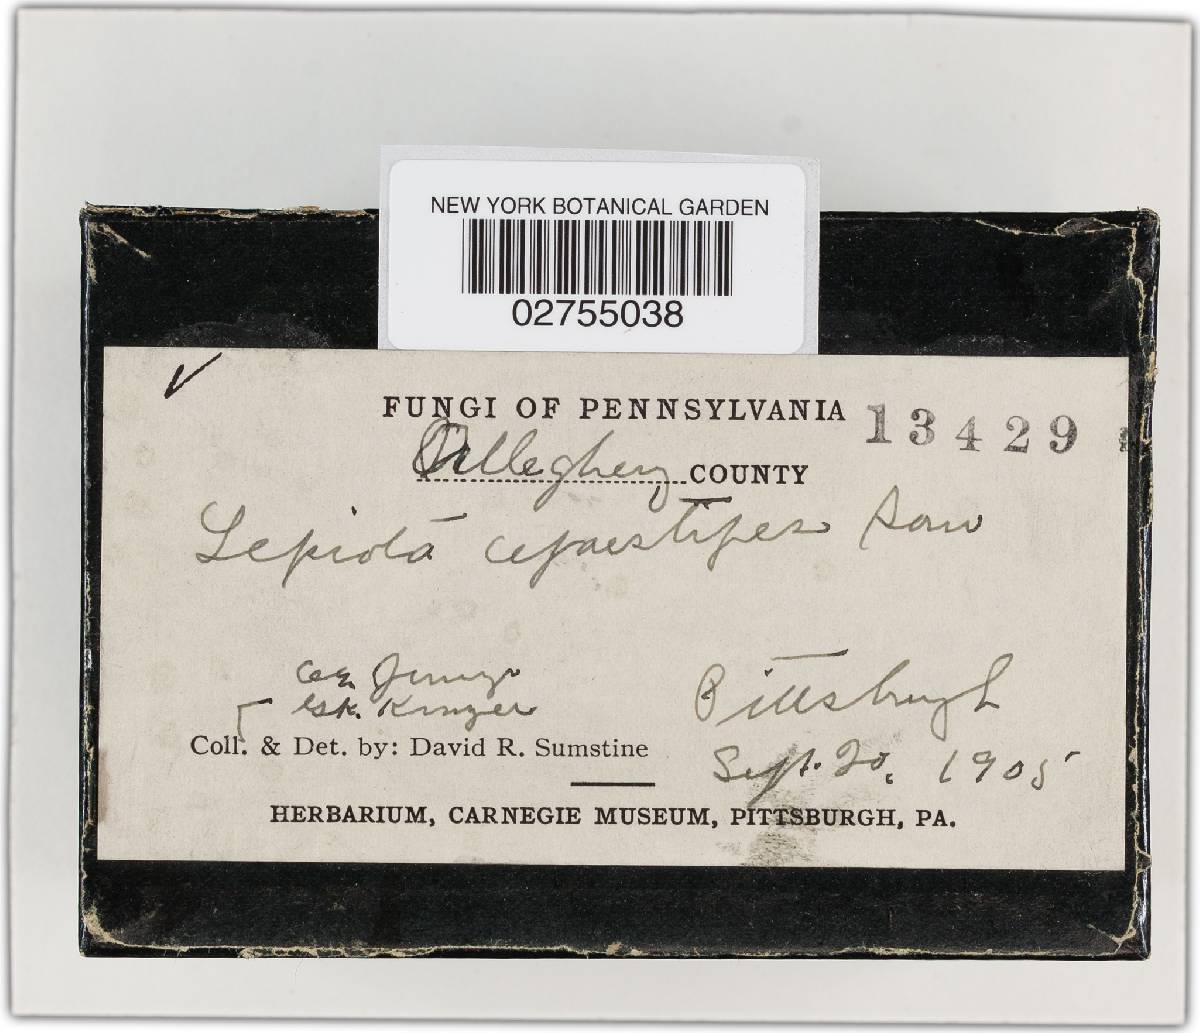 NEW YORK BOTANICAL GARDEN
02755038
FUNGI OF PENNSYLVANIA 13429
Allegheny COUNTY
Lepiota cepaestipes Sow
Pittsburgh
Coll. & Det. by: David R. Sumstine
Sept. 20, 1905
HERBARIUM, CARNEGIE MUSEUM, PITTSBURGH, PA.